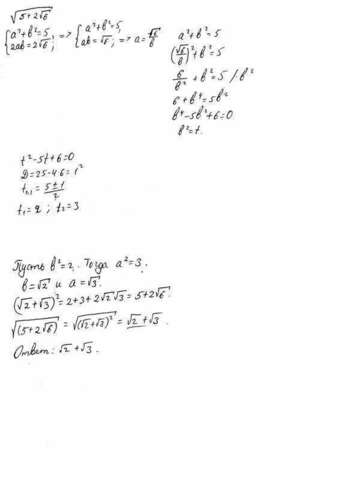 √(5+2√6)
{a²+b²=5, 2ab=2√6; => {a²+b²=5, ab=√6; => a=√6/b
a²+b²=5
(√6/b)²+b²=5
6/b²+b²=5 /b²
6+b⁴=5b²
b⁴-5b²+6=0
b²=t.
t²-5t+6=0
D=25-4·6=1²
t₂,₁=(5±1)/2
t₁=2; t₂=3
Пусть b²=2. Тогда a²=3.
b=√2 и a=√3.
(√2+√3)²=2+3+2√2√3=5+2√6.
√(5+2√6)=√((√2+√3)²)=√2+√3
Ответ: √2+√3.